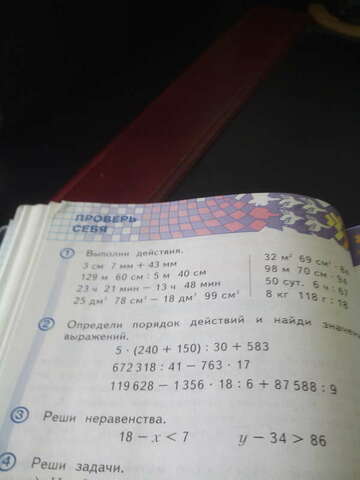 ПРОВЕРЬ
СЕБЯ
1 Выполни действия.
3 см 7 мм + 43 мм
129 м 60 см : 5 м 40 см
23 ч 21 мин − 13 ч 48 мин
25 дм² 78 см² − 18 дм² 99 см²
32 м² 69 см² ·
98 м 70 см ·
50 сут. 6 ч :
8 кг 118 г : 18
2 Определи порядок действий и найди
выражений.
5 · (240 + 150) : 30 + 583
672 318 : 41 − 763 · 17
119 628 − 1 356 · 18 : 6 + 87 588 : 9
3 Реши неравенства.
18 − x < 7 y − 34 > 86
4 Реши задачи.